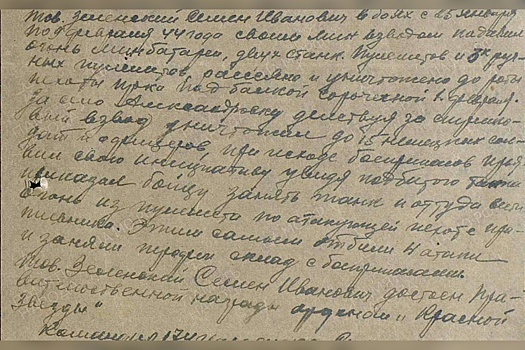 Тов. Зеленский Семен Иванович в боях с 25 января
по 2 февраля 44 года своим мин взводом подавил
огонь минбатареи, двух станк. пулеметов и 3х руч-
ных пулеметов, рассеяно и уничтожено до роты
пехоты пр-ка под балкой 1 февраля.
За село Александровку действуя за стрелко-
вый взвод уничтожили до 15 немецких сол-
дат и офицеров при исходе боеприпасов проя-
вил свою инициативу увидя подбитого танка
приказал бойцу занять танк и оттуда вести
огонь из пулемета по атакующей пехоте про-
тивника. Этим самым отбили 4 атаки
и заняли склад с боеприпасами.
Тов. Зеленский Семен Иванович достоен пра-
вительственной награды орденом "Красной
Звезды"